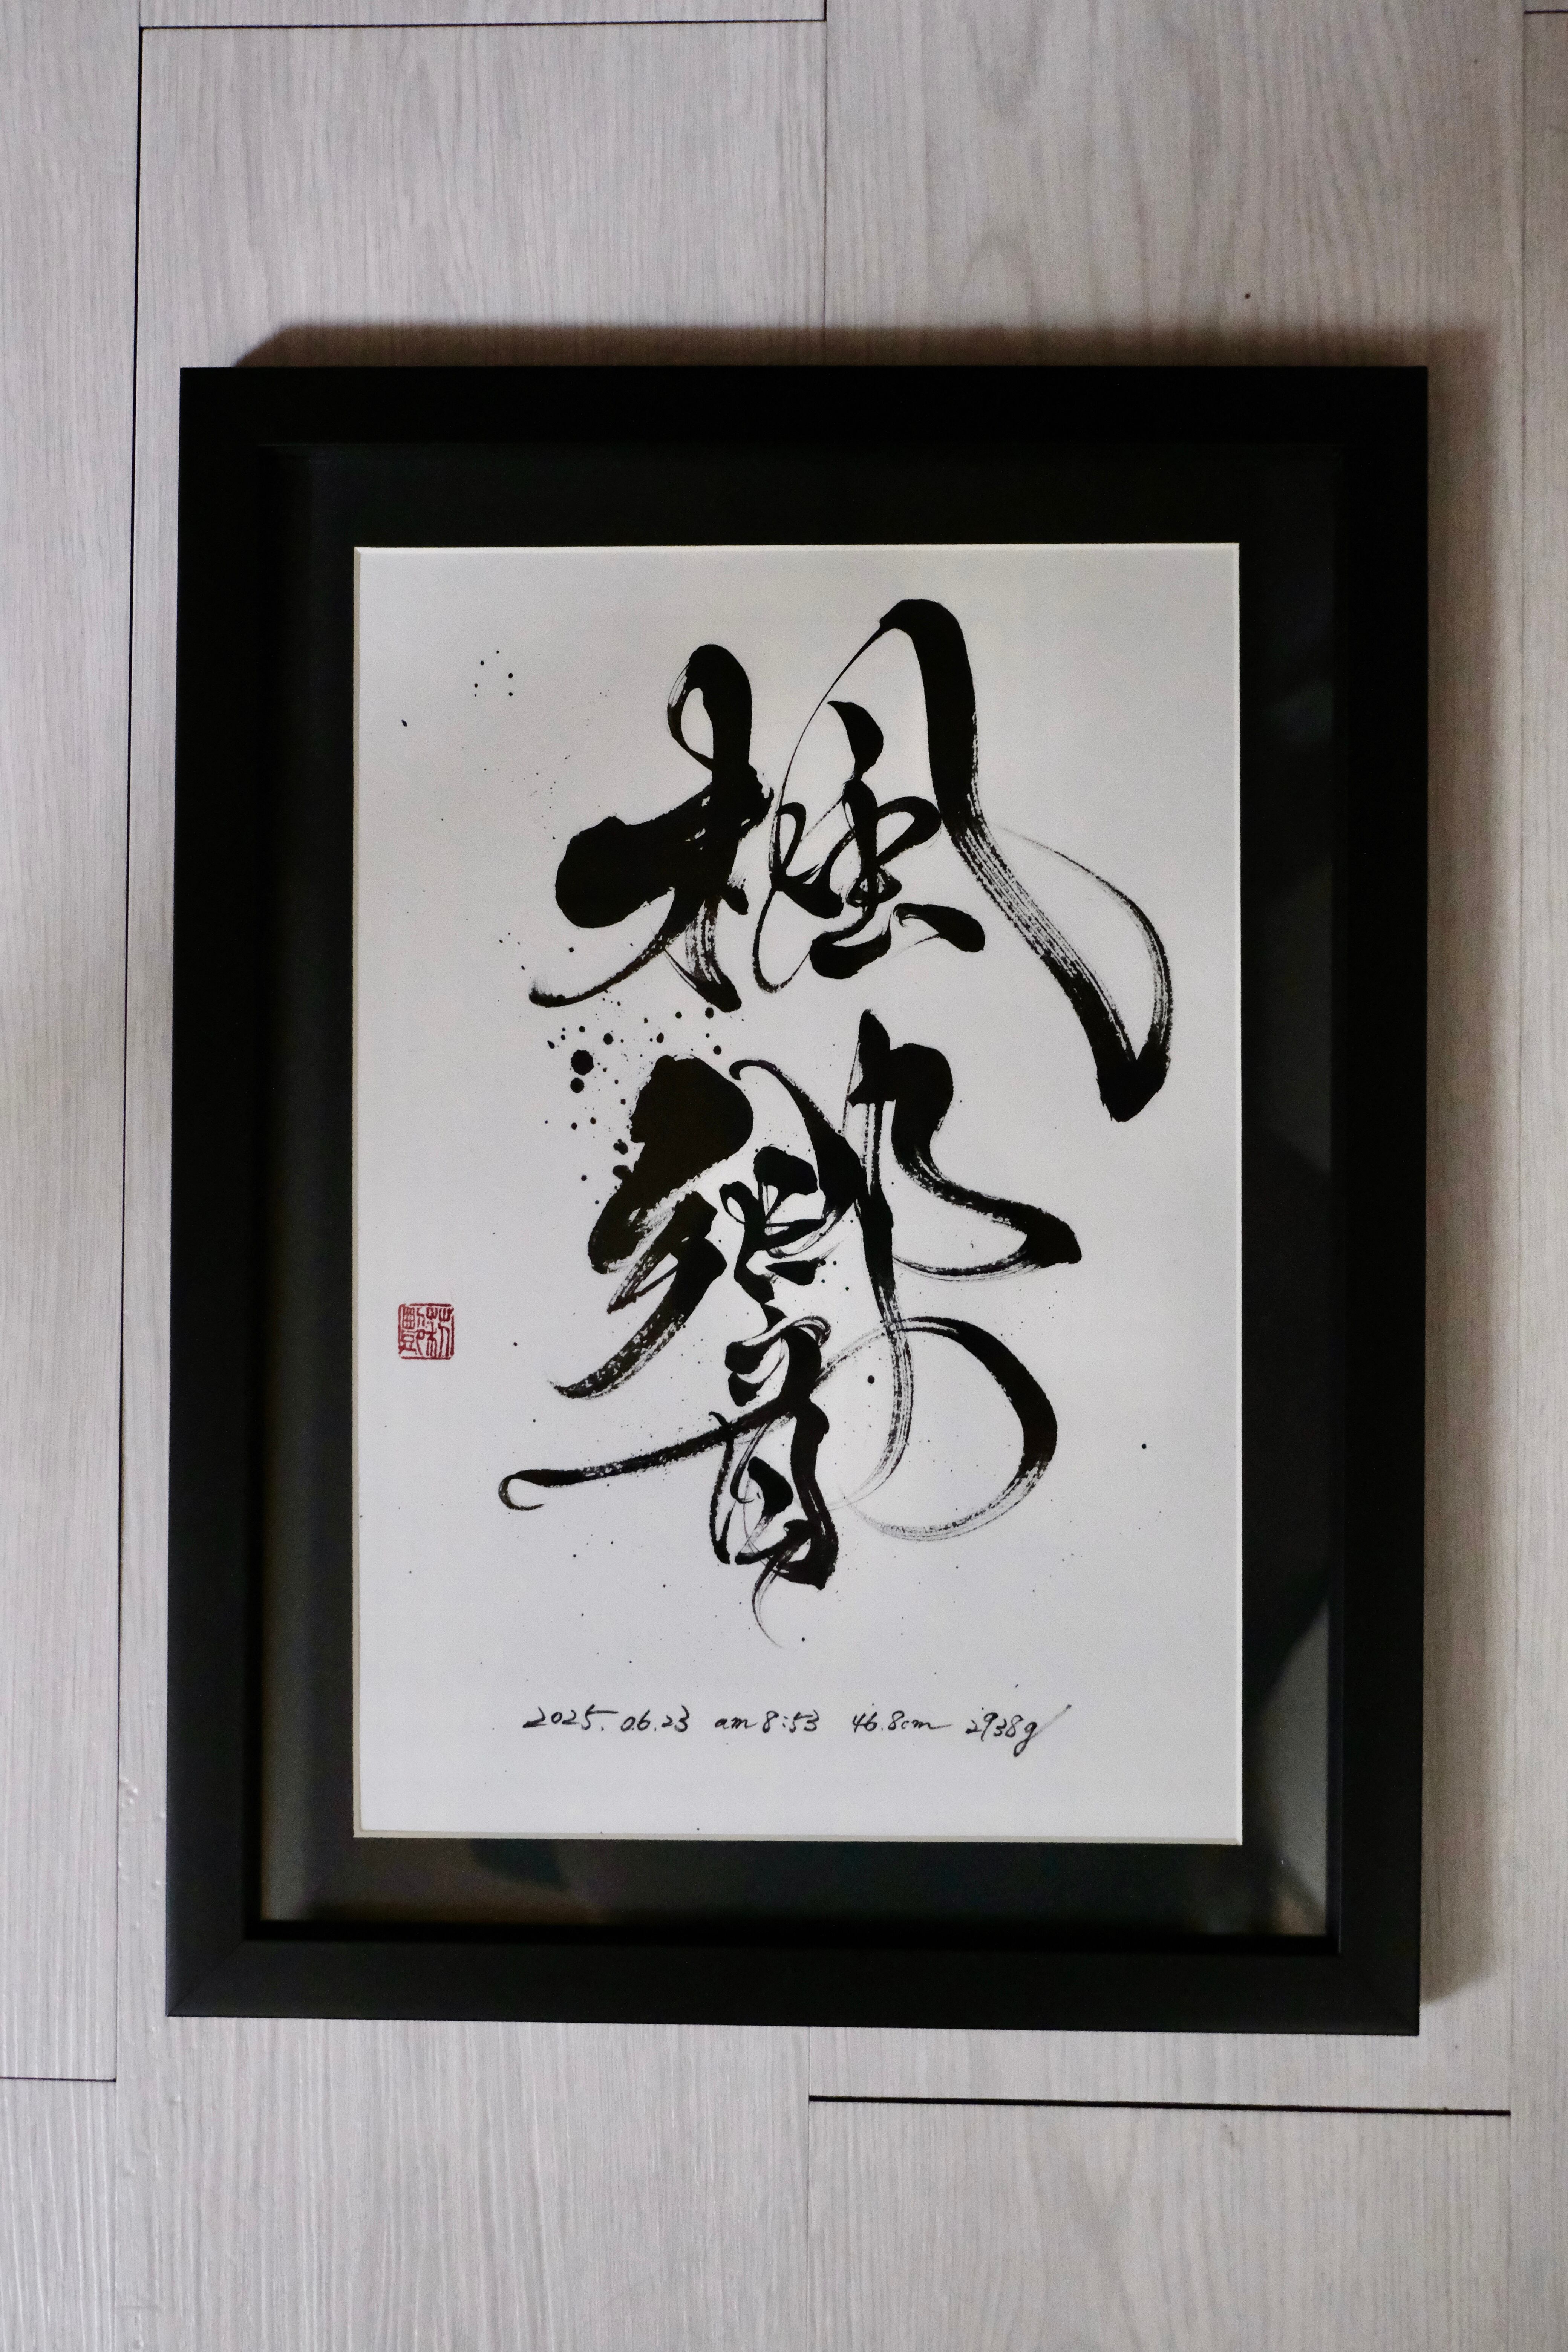 楓
響
2025.06.23 am 8:53 46.8cm 2938g